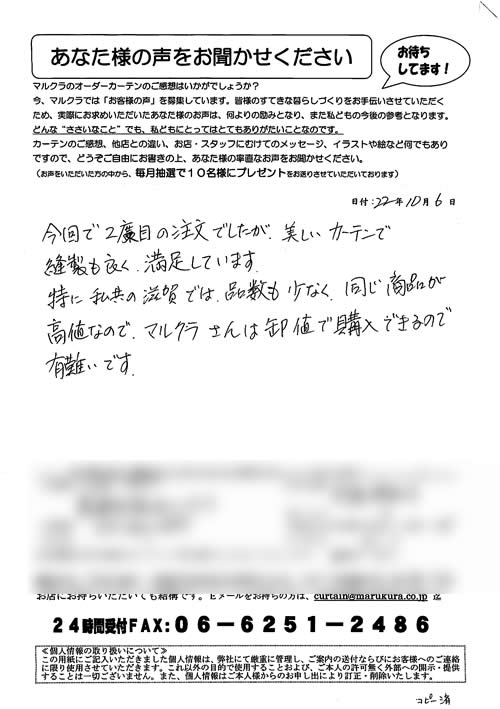 あなた様の声をお聞かせください
お待ち
してます!
マルクラのオーダーカーテンのご感想はいかがでしょうか?
今、マルクラでは「お客様の声」を募集しています。皆様のすてきな暮らしづくりをお手伝いさせていただく
ため、実際にお求めいただいたあなた様のお声は、何よりの励みとなり、また私どもの今後の参考となります。
どんな“ささいなこと”でも、私どもにとってはとてもありがたいことなのです。
カーテンのご感想、他店との違い、お店・スタッフにむけてのメッセージ、イラストや絵など何でもあり
ですので、どうぞご自由にお書きの上、あなた様の率直なお声をお聞かせください。
(お声をいただいた方の中から、毎月抽選で10名様にプレゼントをお送りさせていただいております)
日付:22年10月6日
今回で2度目の注文でしたが、美しいカーテンで
縫製も良く、満足しています。
特に私共の滋賀では、品数も少なく、同じ商品が
高値なので、マルクラさんは卸値で購入できるので
有難いです。
お店にお持ちいただいても結構です。Eメールをお持ちの方は、curtain@marukura.co.jp 迄
24時間受付FAX:06-6251-2486
≪個人情報の取り扱いについて≫
この用紙にご記入いただきました個人情報は、弊社にて厳重に管理し、ご案内の送付ならびにお客様へのご連絡
に限り使用させていただきます。これ以外の目的で使用すること、および、ご本人の許可無く外部への開示・提供
することは一切ございません。また、個人情報はご本人様からのお申し出により訂正・削除いたします。
コピー済